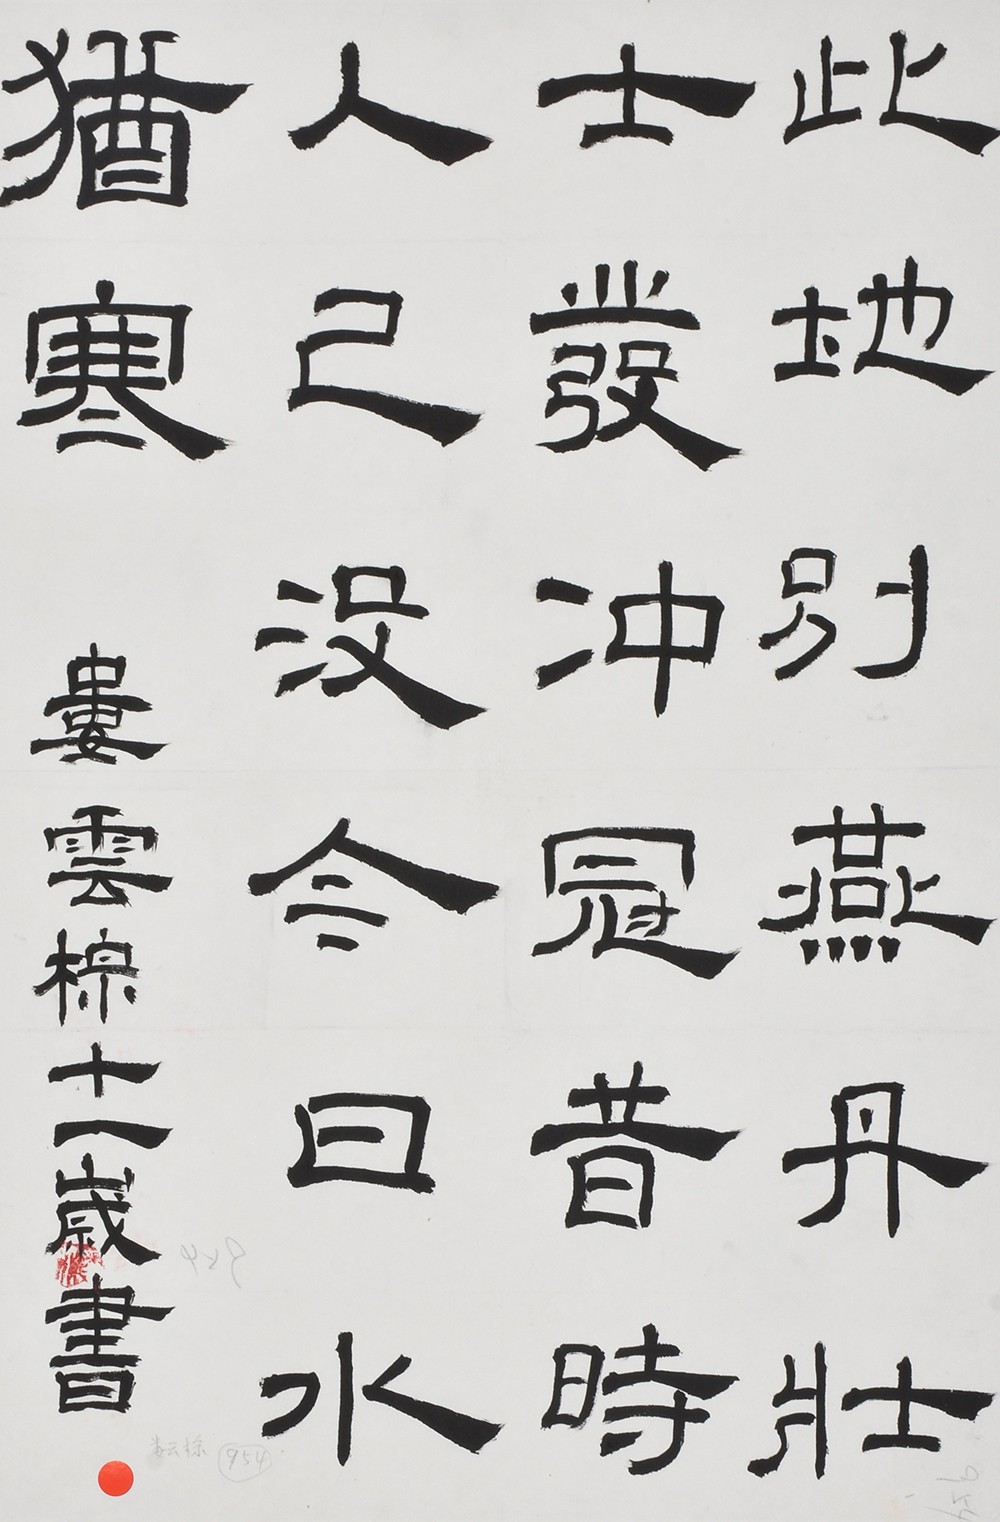 此地別燕丹壯
士發沖冠昔時
人已没今日水
猶寒
婁雲棕十一歲書
954
954